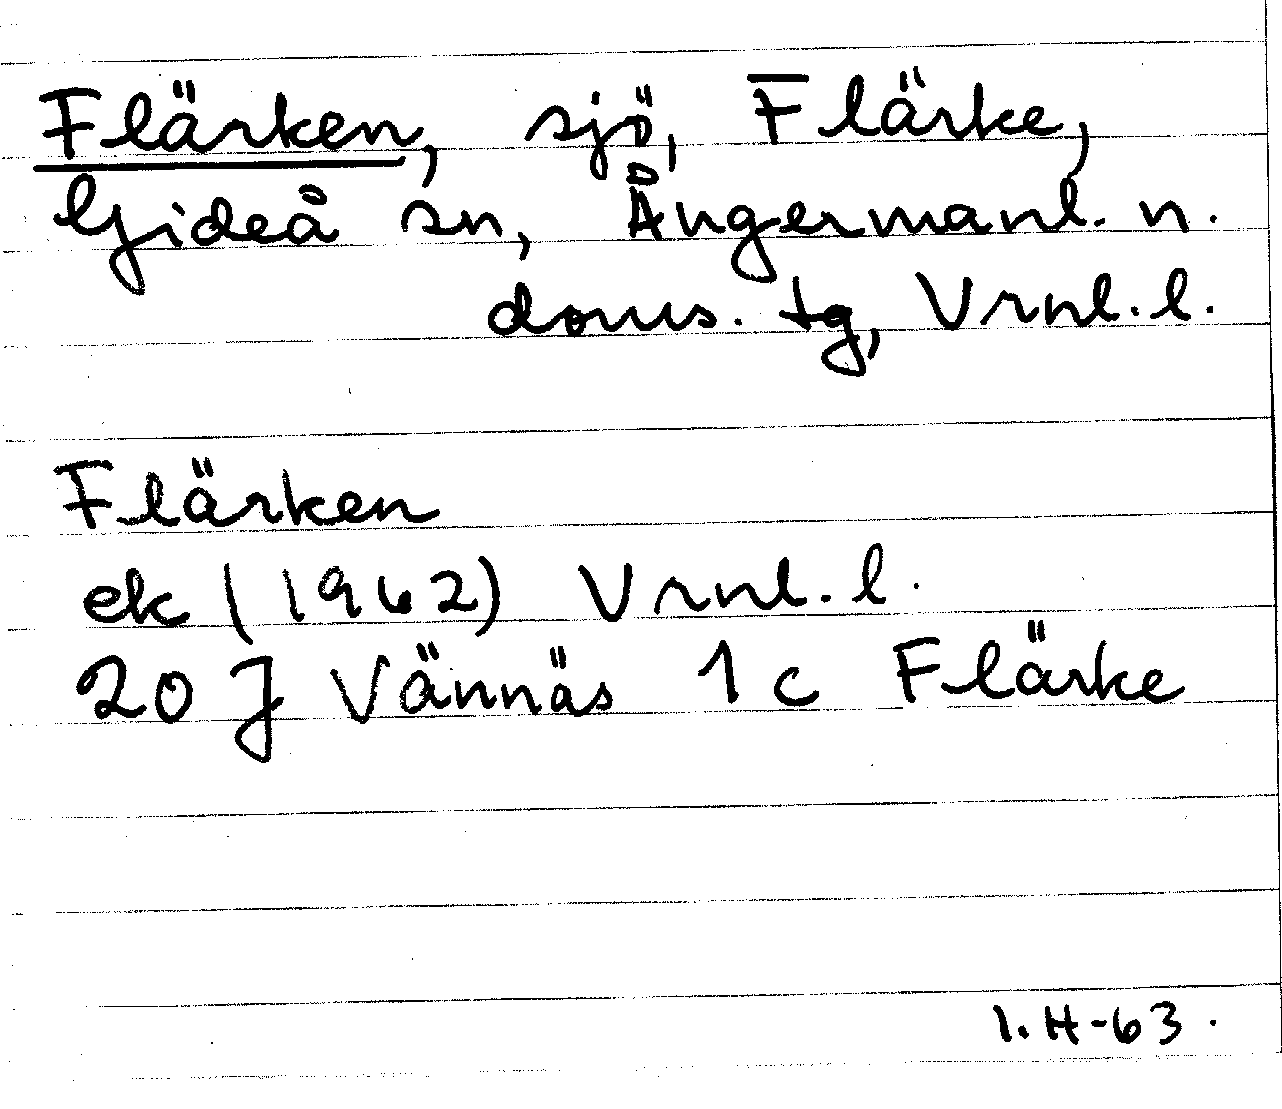 Flärken, sjö, Flärke,
Gideå sn, Ångermanl. n.
doms. tg, Vrnl. l.
Flärken
ek (1962) Vrnl. l.
20 J Vännäs 1 c Flärke
I. H-63.